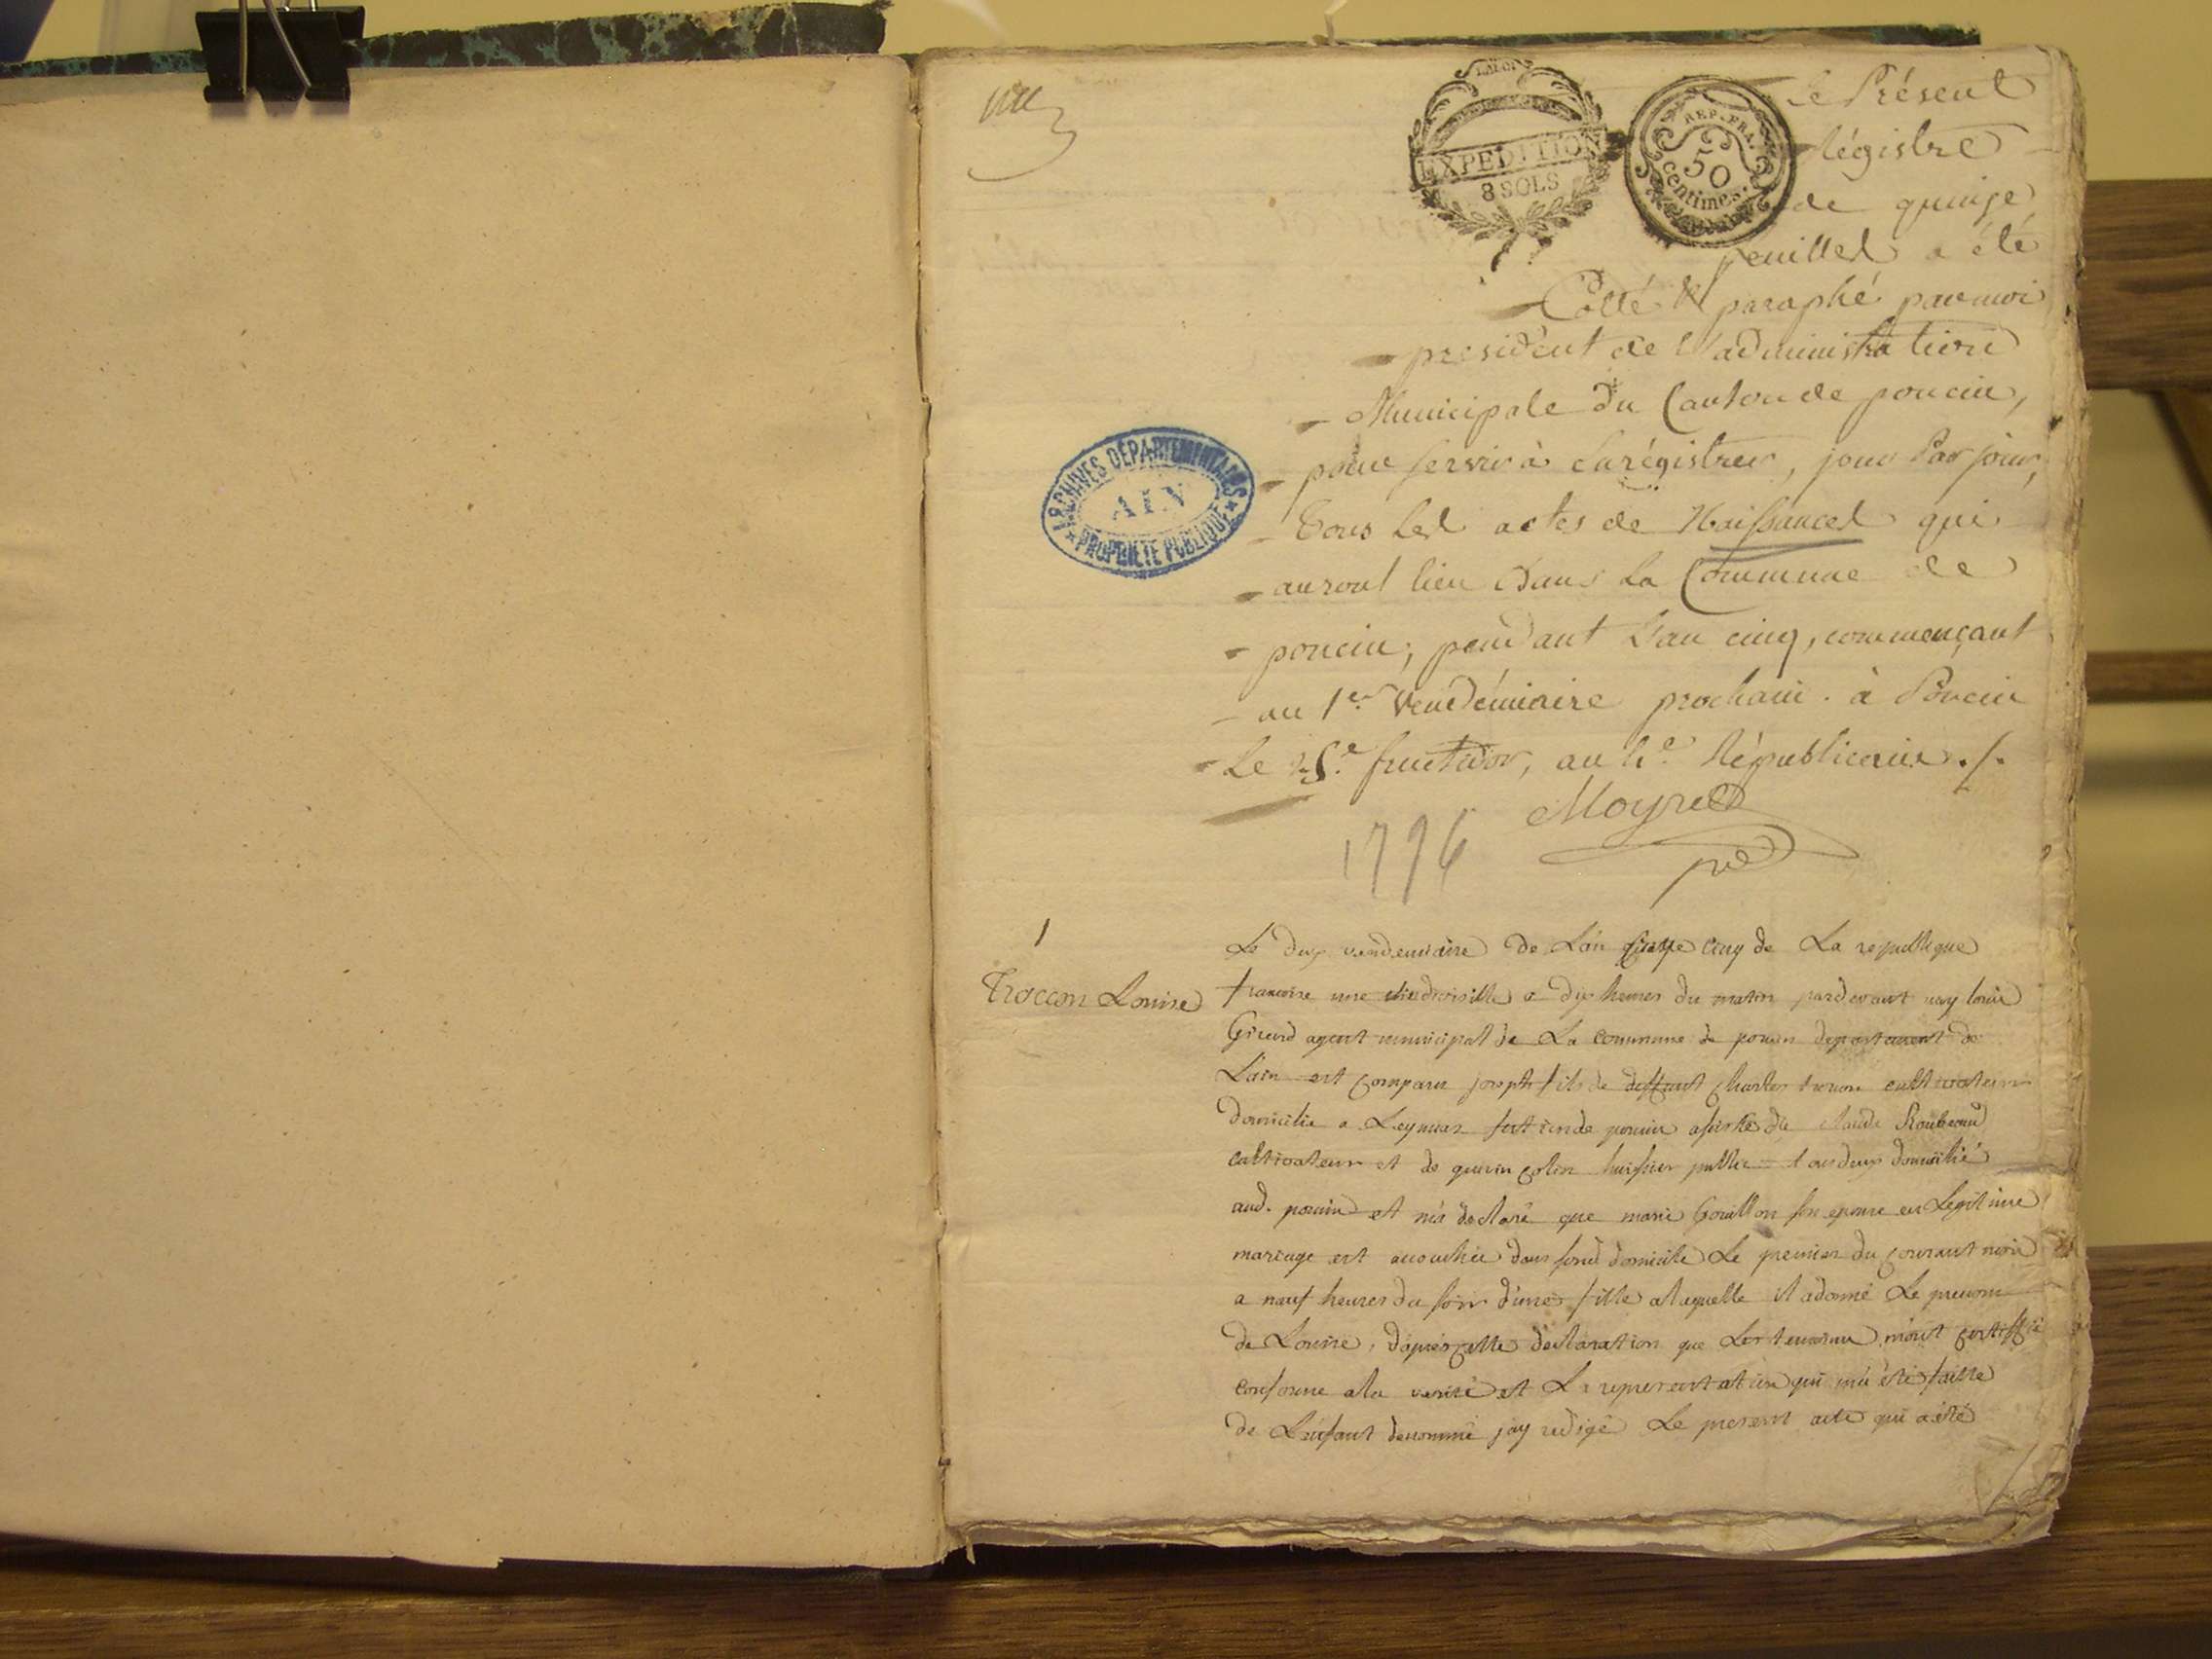 LA LOI
EXPEDITION
8 SOLS
REP. FRA.
50
centimes.
Le Présent
Régistre
de quinze
feuillets a été
Cotté & paraphé par moi
président de l'administration
Municipale du Canton de poncin,
pour servir à enrégistrer, jour Par jour,
Tous Les actes de Naissances qui
auront lieu Dans La Commune de
poncin, pendant L'an cinq, commençant
au 1er Vendémiaire prochain. à Poncin
Le 25e fructidor, an 4e Républicain ./.
Moyret
pred
ARCHIVES DÉPARTEMENTALES
AIN
PROPRIÉTÉ PUBLIQUE
1796
1
Troccon Louise
Le dix vendemiaire de Lan cinq de La republique
francoise une indivisible a dix heures du matin pardevant moy louis
Girard agent municipal de La commune de poncin departement de
Lain est comparu joseph fils de deffunt Charles trocon cultivateur
domicilie a Leymiat section de poncin assisté de claude Roubeaud
cultivateur et de guerin colin huissier public tous deux domicilié
aud. poncin et m'a declaré que marie Gouillon son epouse en Legitime
mariage est accouchée dans sond domicile Le premier du courant mois
a neuf heures du soir d'une fille a laquelle il a donné Le prenom
de Louise, d'apres cette declaration que Les temoins m'ont certiffié
conforme a la verité et La representation qui m'a été faitte
de L'enfant denommé jay redigé Le present acte qui a été